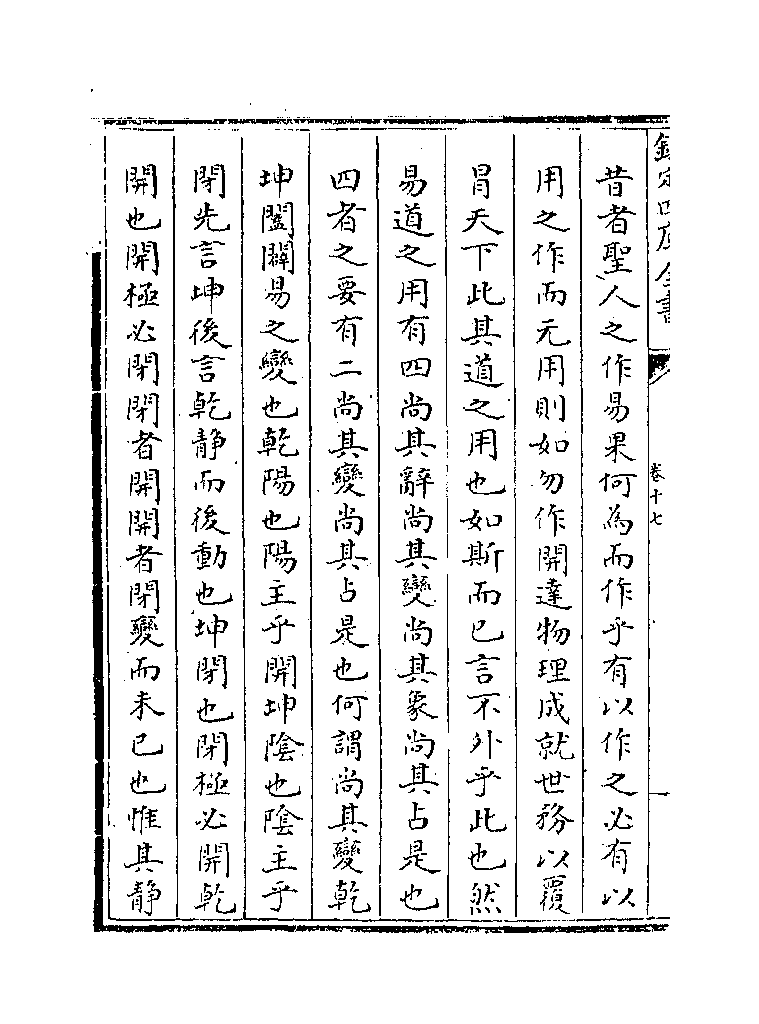 欽定四庫全書
卷十七
一
昔者聖人之作易果何為而作乎有以作之必有以
用之作而无用則如勿作開達物理成就世務以覆
冒天下此其道之用也如斯而已言不外乎此也然
易道之用有四尚其辭尚其變尚其象尚其占是也
四者之要有二尚其變尚其占是也何謂尚其變乾
坤闔闢易之變也乾陽也陽主乎開坤陰也陰主乎
閉先言坤後言乾静而後動也坤閉也閉極必開乾
開也開極必閉閉者開開者閉變而未已也惟其静